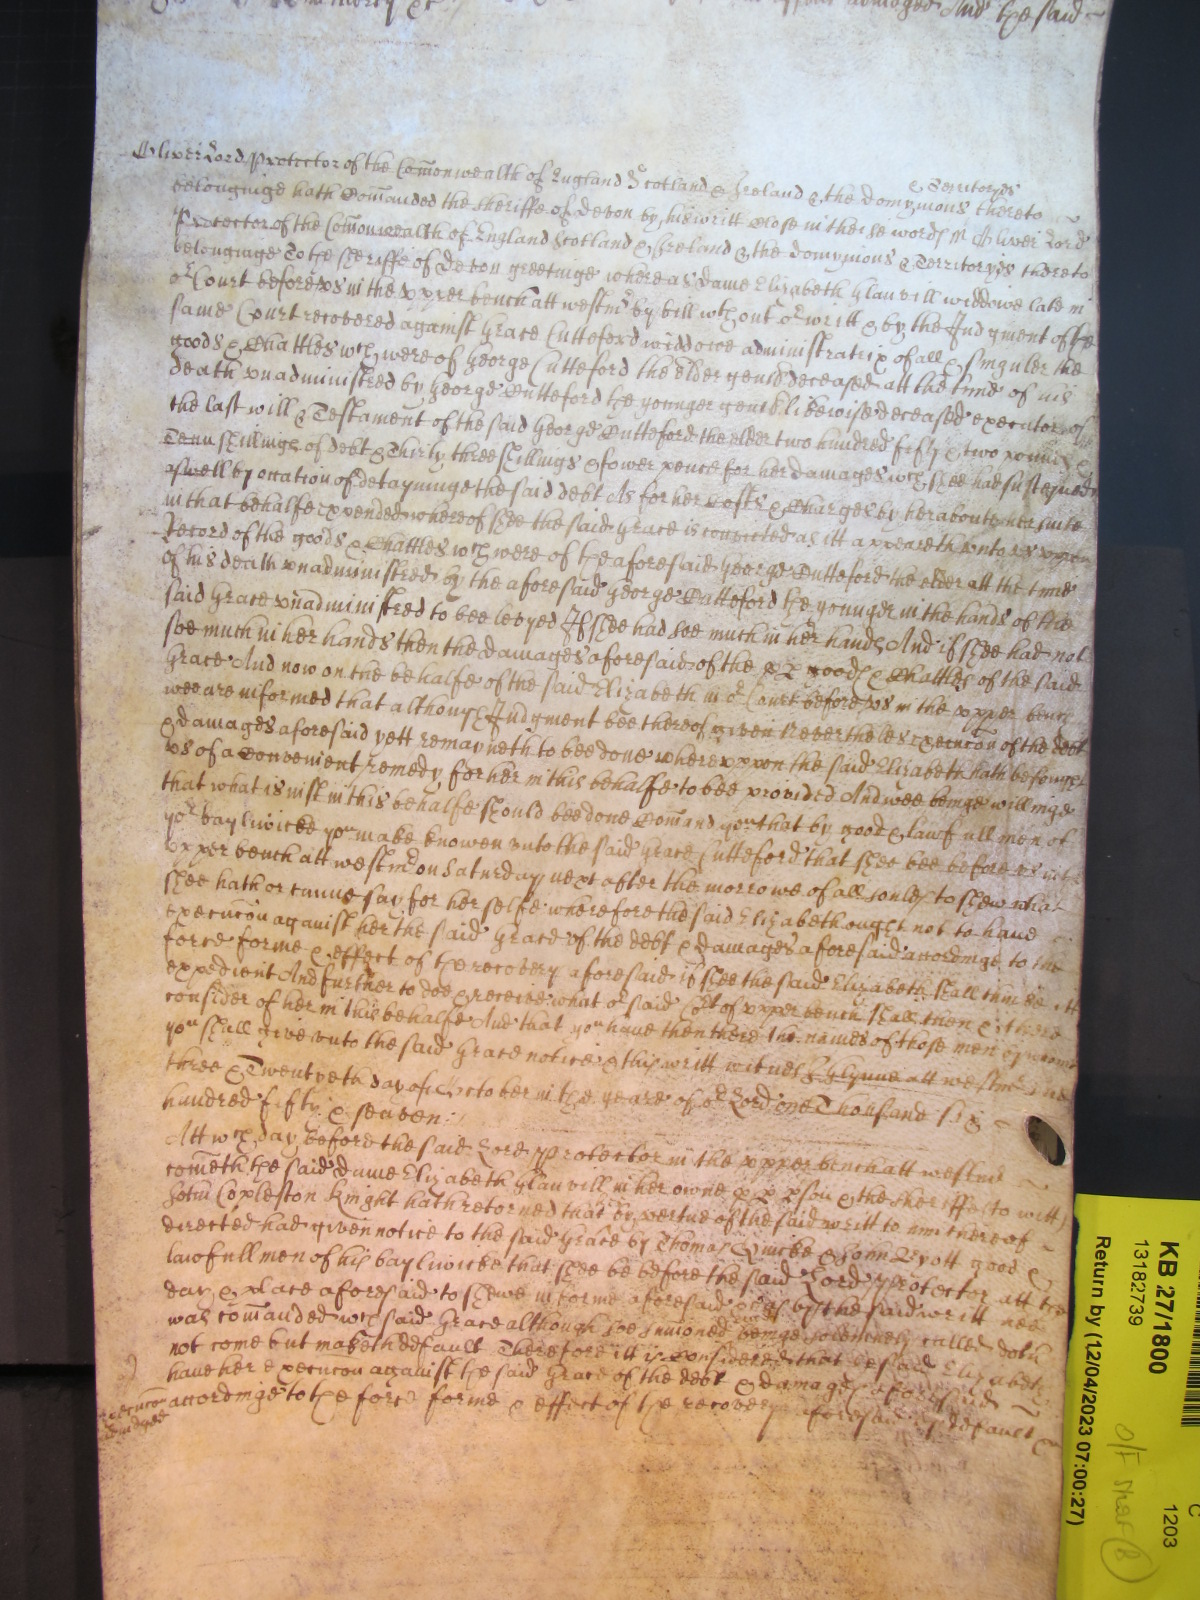 And the said
Oliver Lord Protector of the Com̄onwealth of England Scotland & Ireland & the dominyons & Territoryes thereto
belonginge hath Com̄anded the sheriffe of Devon by his writt Close in these words ss Oliver Lord
Protector of the Com̄onwealth of England Scotland & Ireland & the dominyons & Territoryes thereto
belonginge To the sheriffe of Devon greetinge whereas dame Elizabeth Glanvill widdowe late in
or Court before us in the upper bench att westmr by bill wthout or writt & by the Judgment of the
same Court recovered against Grace Cutteford widdowe administratrix of all & singuler the
goods & Chattles wch were of George Cutteford the elder gent deceased att the time of his
death unadministred by George Cutteford the younger gent likewise deceased executor of
the last will & Testament of the said George Cutteford the elder two hundred fifty & two pounds &
Tenn shillings of debt & Thirty three shillings & fower pence for her damages wch shee had susteyned
aswell by occation of detayninge the said debt As for her Costs & Charges by her about her suite
in that behalfe expended whereof shee the said Grace is convicted as itt appeareth unto us upon
Record of the goods & Chattles wch were of the aforesaid George Cutteford the elder att the tyme
of his death unadministred by the aforesaid George Cutteford the younger in the hands of the
said Grace unadministred to bee levyed If shee had soe much in her hands And if shee had not
soe much in her hands then the damages aforesaid of the pp goods & Chattles of the said
Grace And now on the behalfe of the said Elizabeth in or Court before us in the upper bench
wee are informed that although Judgment bee thereof given Neverthelesse execucōn of the debt
& damages aforesaid yett remayneth to bee done whereuppon the said Elizabeth hath besought
us of a Convenient remedy for her in this behalfe to bee provided And wee beinge willinge
that what is iust in this behalfe should bee done Com̄and you that by good & lawfull men of
yor bayliwicke you make knowen unto the said Grace Cutteford that shee bee before us in the
upper bench att westmr on Saturday next after the morrowe of all soules to shew what
shee hath or cann say for herselfe wherefore the said Elizabeth ought not to have
execucōn against her the said Grace of the debt & damages aforesaid accordinge to the
force forme & effect of the recovery aforesaid if shee the said Elizabeth shall thinke itt
expedient And further to doe & receive what or said Cort of upper bench shall then & there
consider of her in this behalfe And that you have then there the names of those men by whome
you shall give unto the said Grace notice & this writt witnes J Glynne att westmr the
three & Twentyeth day of October in the yeare of or Lord one Thousand six
hundred fifty & seaven
Att wch day before the said Lord Protector in the upper bench att westmr
cometh the said dame Elizabeth Glanvill in her owne pp pson & the sheriffe to witt
John Copleston knight hath retorned that by vertue of the said writt to him thereof
directed had given notice to the said Grace by Thomas Quicke & John good &
lawfull men of his bayliwicke that shee be before the said Lord Protector att the
day & place aforesaid to shewe in forme aforesaid as by the said writt hee
was com̄anded wch said Grace although soe sum̄oned beinge solemnely called doth
not come but maketh default Therefore itt is Considered that the said Elizabeth
have her execucōn against the said Grace of the debt & damages aforesaid
accordinge to the force forme & effect of the recovery aforesaid by default &c
Execucōn
KB 27/1800
13182739
Return by (12/04/2023 07:00:27)
C
1203